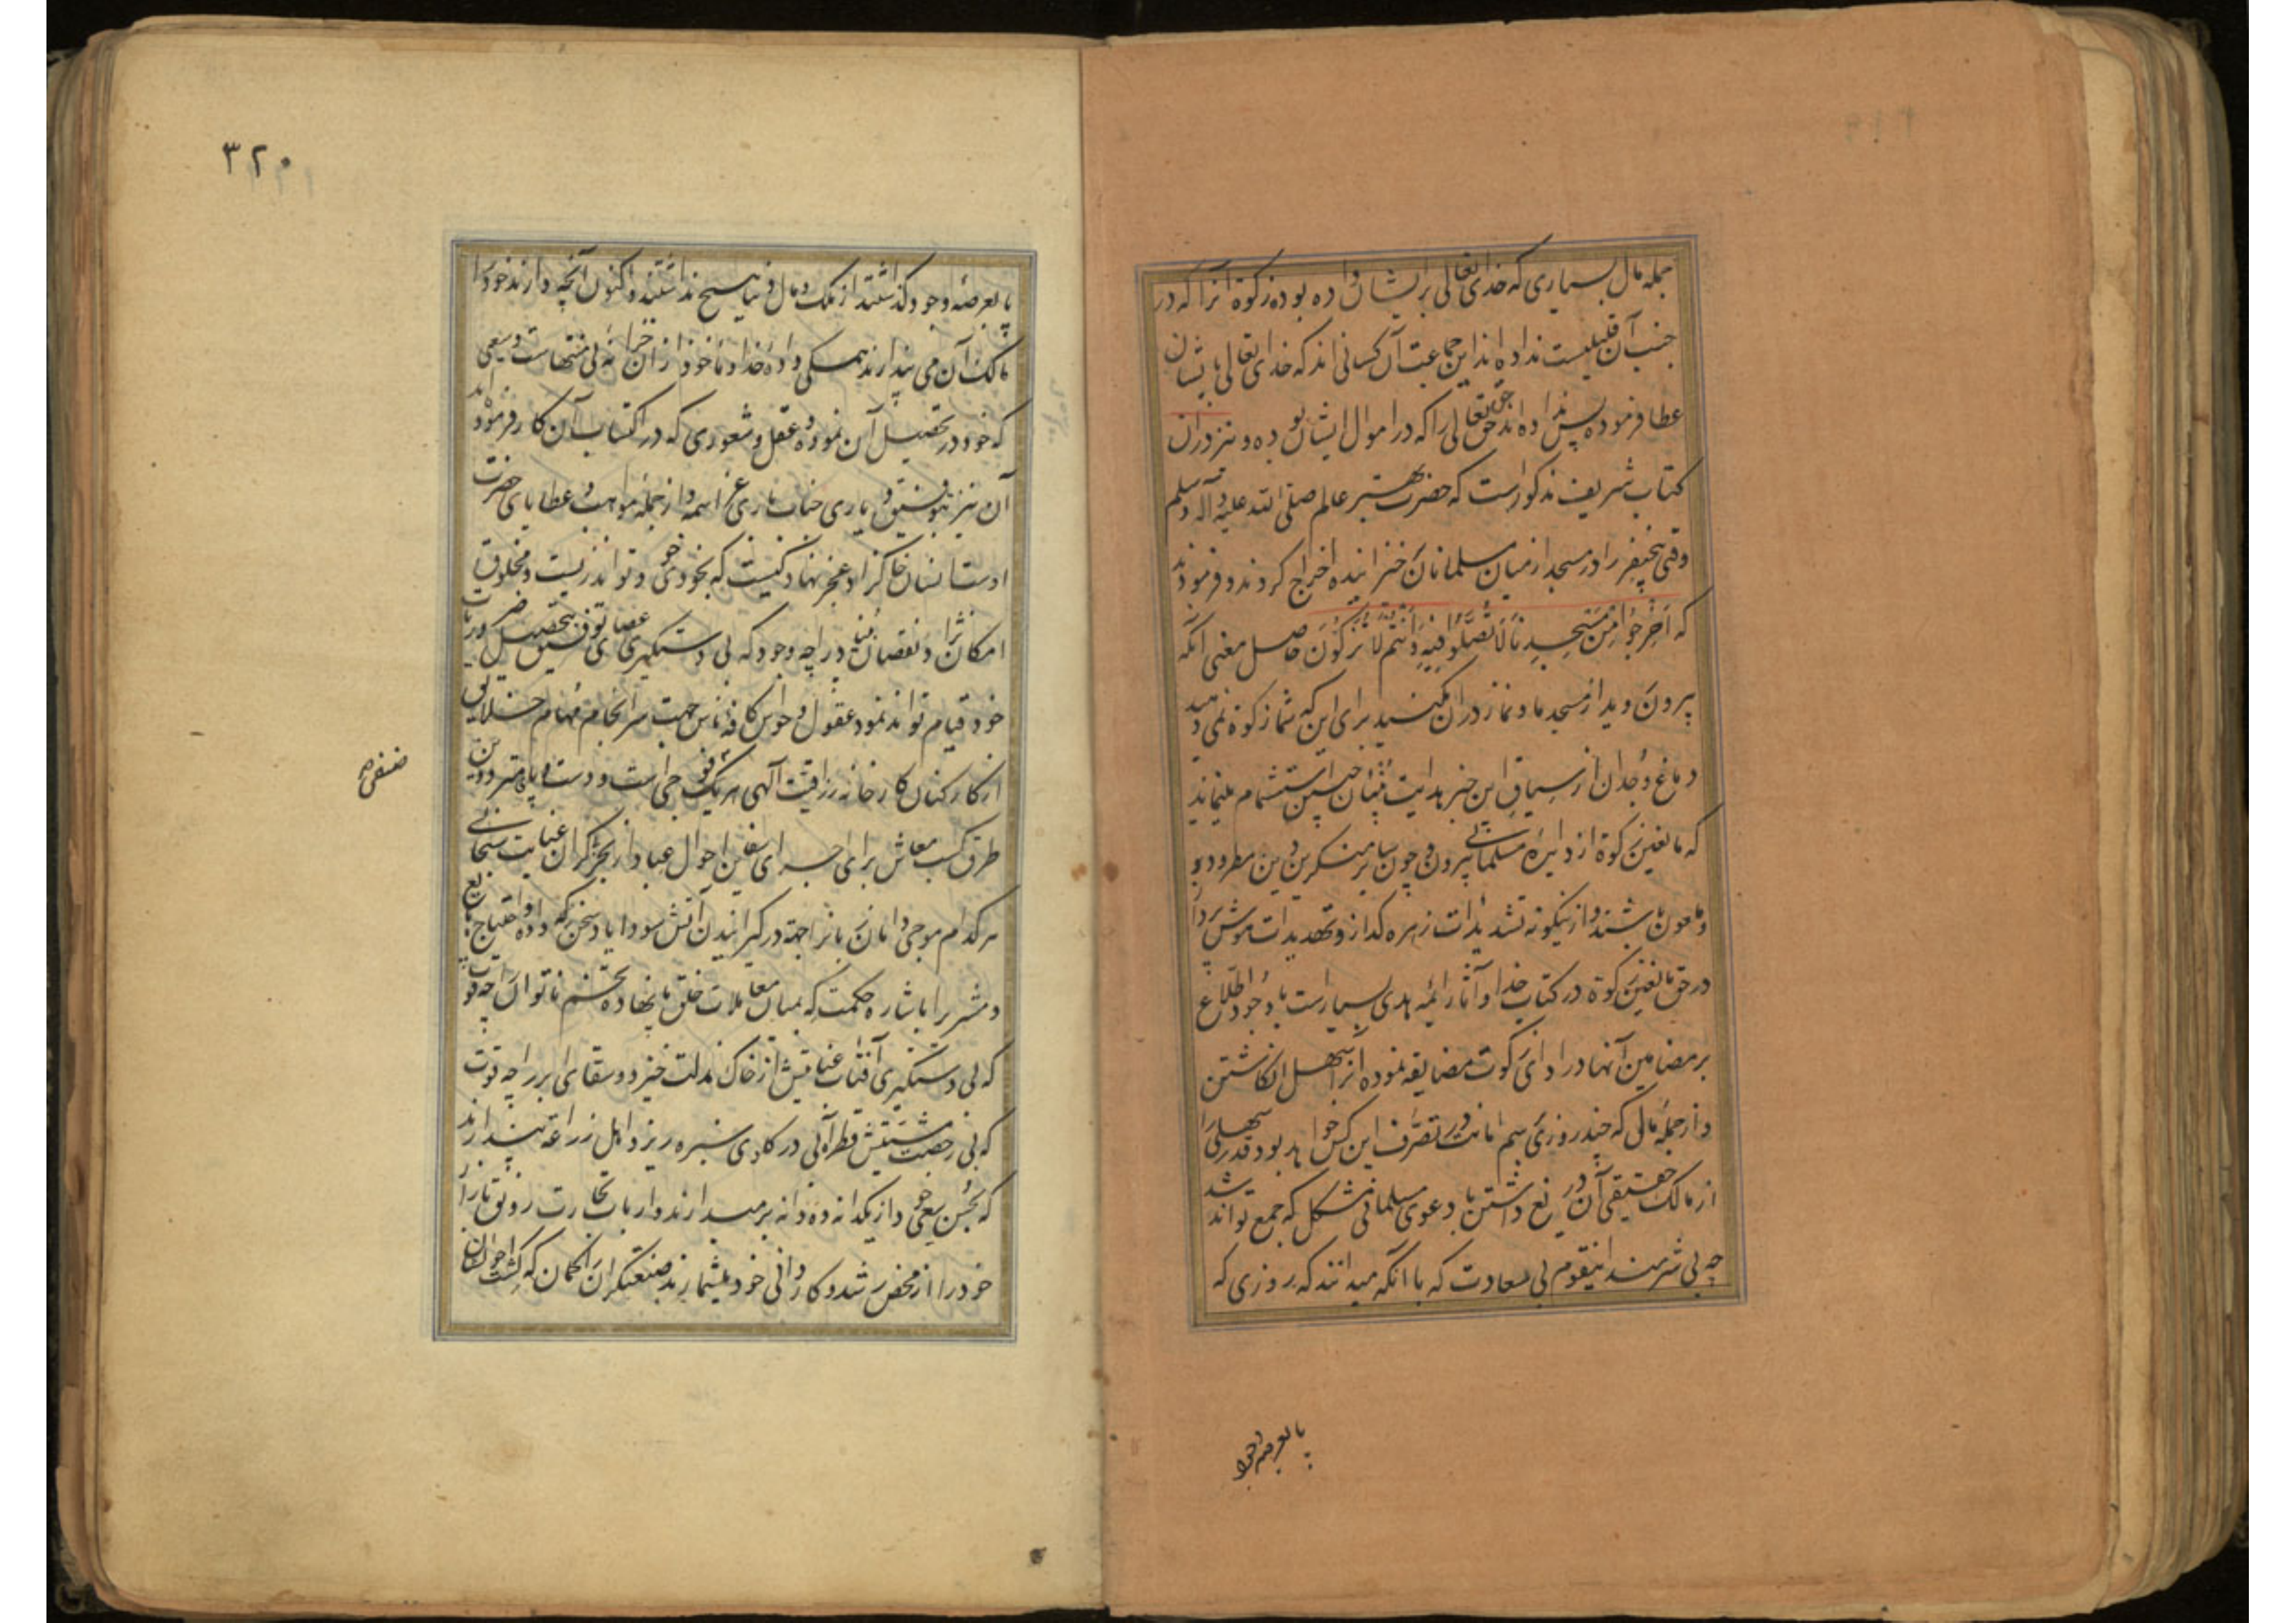 جمله مال بسیاری که خدای تعالی بر ایشان داده بوده زکوة آنرا که در
جنب آن قلیلیست نداده اند این جماعت آن کسانی اند که خدای تعالی بایشان
عطا فرموده پس نداده اند حق حق تعالی را که در اموال ایشان بوده و نیز در ان
کتاب شریف مذکور است که حضرت بهتر عالم صلی الله علیه و آله وسلم
وقتی پنج نفر را در مسجد از میان مسلمانان خیزانیده اخراج کردند و فرمودند
که اخرجوا من مسجدنا لا تصلوا فیه و انتم لا تزکون حاصل معنی آنکه
بیرون روید از مسجد ما و نماز در ان مکنید برای این که شما زکوة نمی دهید
دماغ وجدان از سیاق این خبر هدایت بنیان چنین استشمام مینماید
که مانعین زکوة از دایره مسلمانی بیرون و چون سایر منکرین دین مطرود
و ملعون باشند و ازینگونه تشدیدات زهره گداز و تهدیدات هوش پرداز
در حق مانعین زکوة در کتاب خدا و آثار ائمه هدی بسیار است با وجود اطلاع
بر مضامین آنها در ادای زکوت مضایقه نموده آنرا سهل انگاشتن
و از جمله مالی که چند روزی برسم امانت در تصرف این کس خواهد بود قدر سهلی را
از مالک حقیقی آن دریغ داشتن با دعوی مسلمانی مشکل که جمع تواند شد
چه بی شرمند اینقوم بی سعادت که با آنکه میدانند که روزی که
پا بعرصه وجود
۳۲۰
پا بعرصه وجود گذاشتند از ملک و مال دنیا هیچ نداشتند و اکنون آنچه دارند خود را
مالک آن می پندارند همگی داده خدا و ماخوذ از ان خزانه بی منتهاست و سعیی
که خود در تحصیل آن نموده و عقل و شعوری که در اکتساب آن کار فرموده اند
آن نیز بتوفیق و یاری جناب باری عز اسمه و از جمله مواهب و عطایای حضرت
اوست انسان خاکزاد عجز نهاد کیست که بخودی خود تواند زیست و مخلوق
امکان نژاد نقصان بنیاد را چه وجود که بی دستگیری عصای توفیق بتحصیل ضروریات
خود قیام تواند نمود عقول و حواس کافه ناس جهت سرانجام مهام خلایق
از کارکنان کارخانه رزاقیت آلهی هر یک جرا است و دست و پا و متردد
طرق کسب معاش برای اجرای سفاین احوال عباد از بحر بیکران عنایت سبحانی
هر کدام موجی دامان را جهة درگیرانیدن آتش سودا باد سخن که داده احتیاج بایع
و مشتری را باشاره حکمت که بمیان معاملات خلق پا نهاده تخم ناتوان را چه قوت
که بی دستگیری آفتاب عنایتش از خاک مذلت خیزد و سقای ابر را چه قوت
که بی رخصت مشیتش قطره آبی در کام سبزه ریزد اهل زراعة پندارند
که بحسن سعی خود از یکدانه ده دانه برمیدارند و ارباب تجارت رونق بازار
خود را از محض رشد و کاردانی خود میشمارند صنعتگران را گمان که